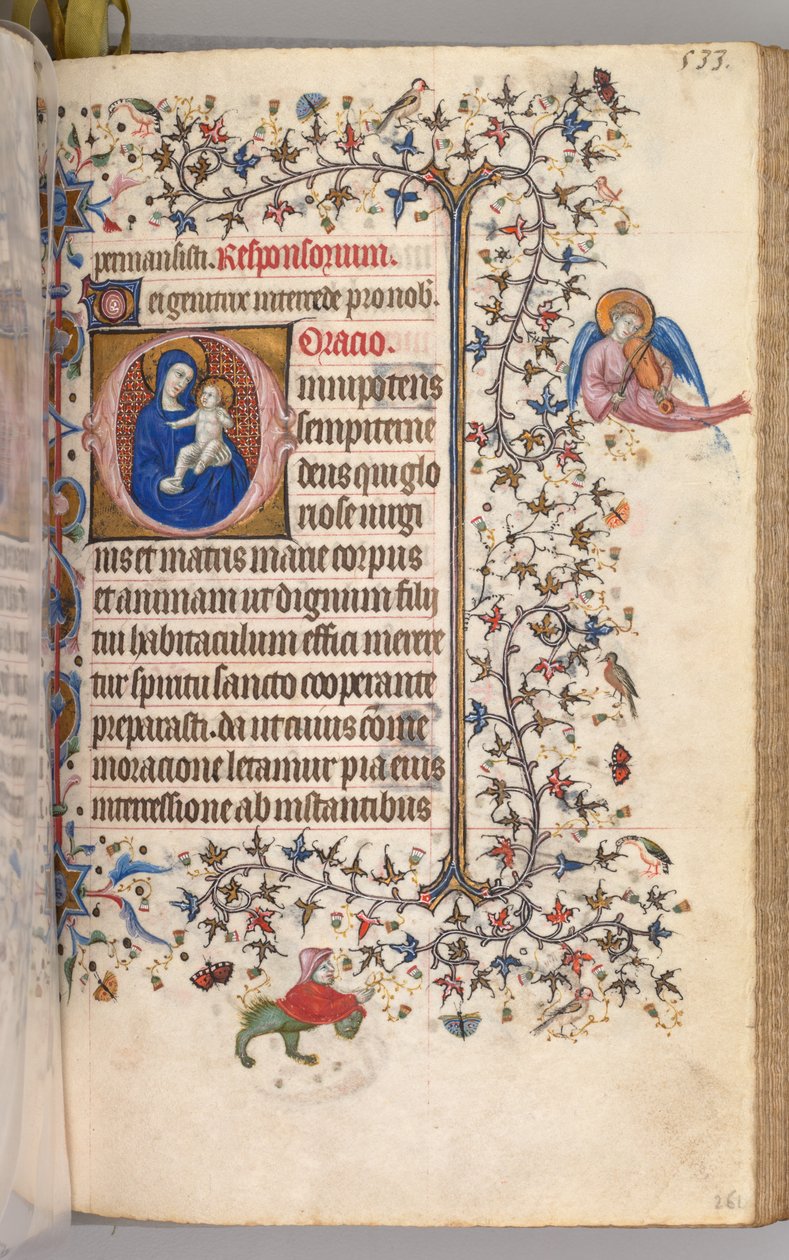 533.
permansisti. Responsorium.
Dei genitrix intercede pro nob.
Oracio.
Omnipotens
sempiterne
deus qui glo
riose uirgi
nis et matris marie corpus
et animam ut dignum filij
tui habitaculum effici merere
tur spiritu sancto cooperante
preparasti. da ut cuius cōme
moracione letamur pia eius
intercessione ab instantibus
261